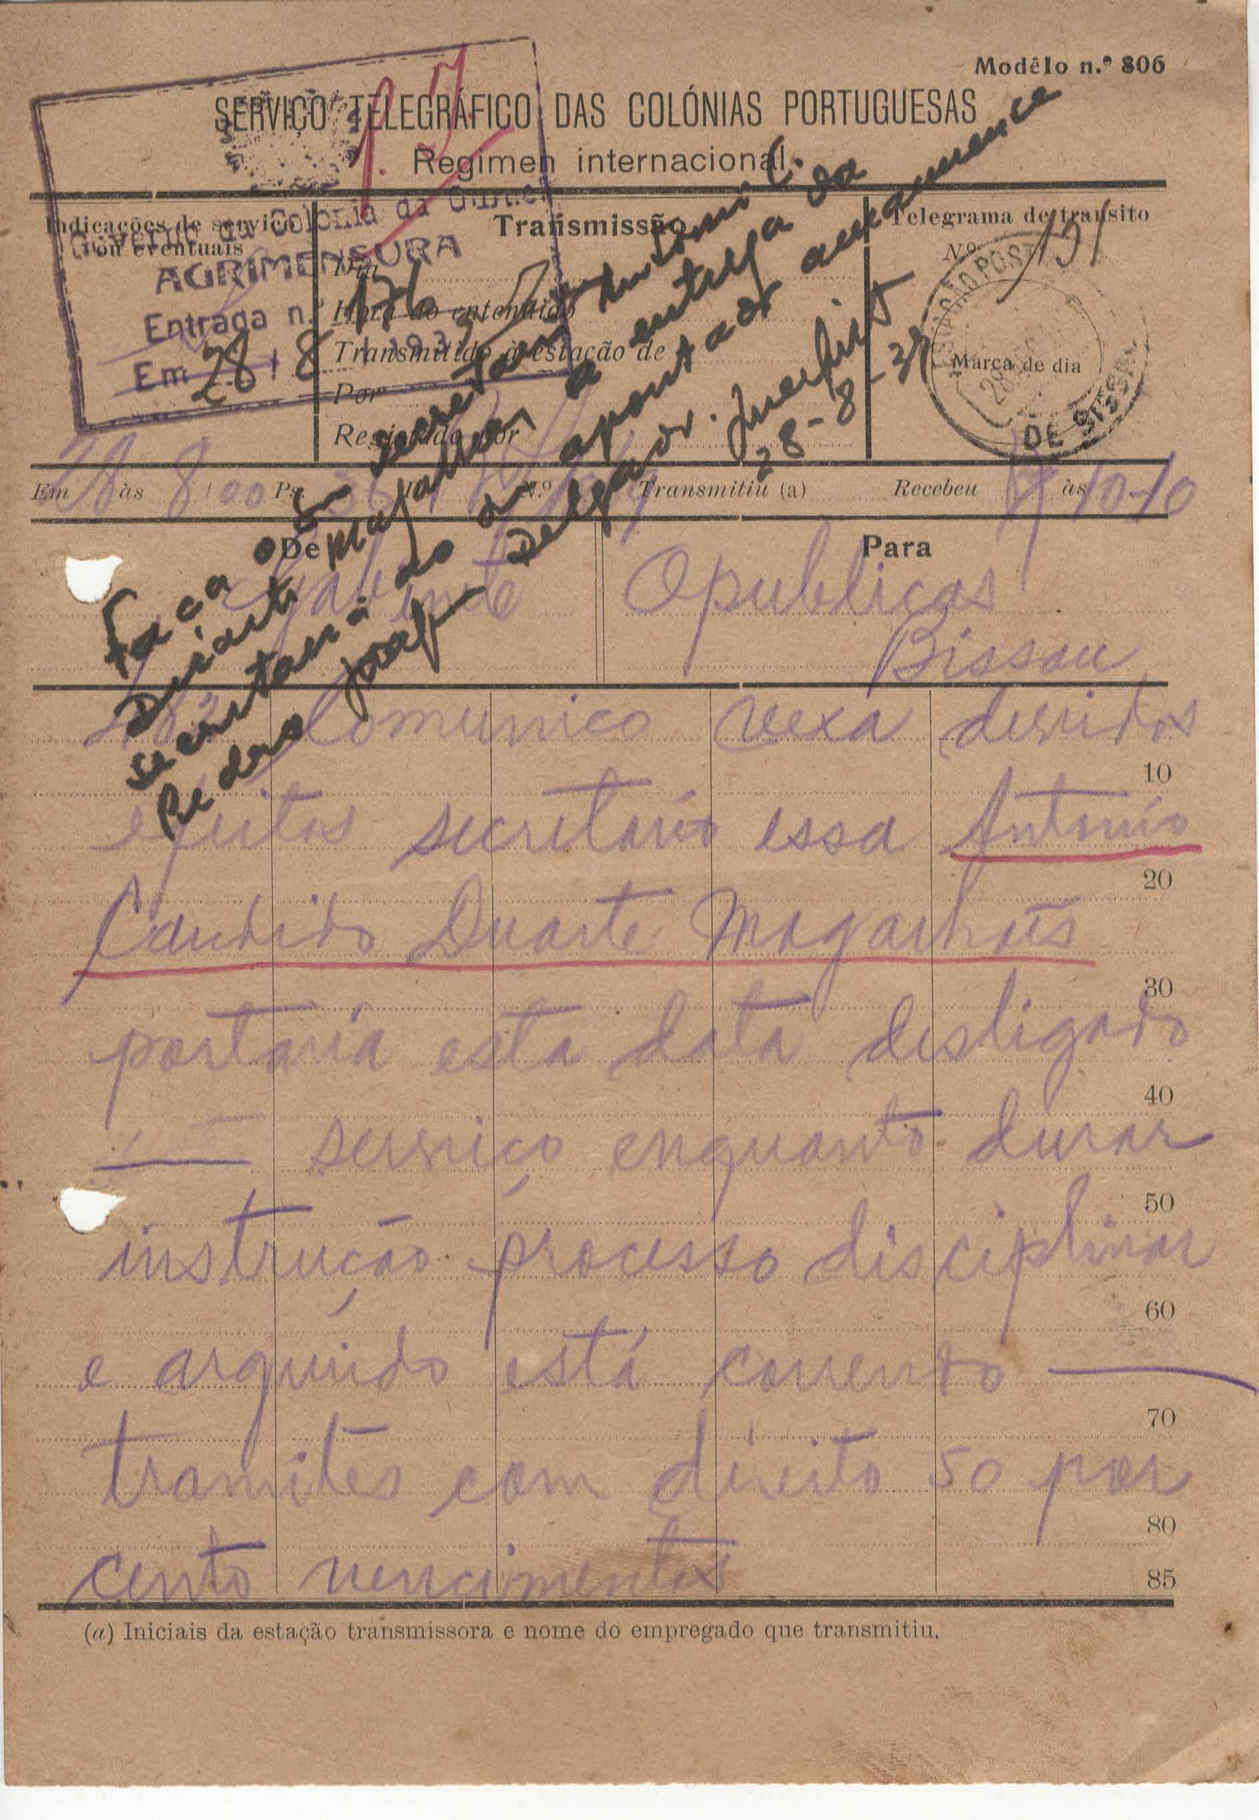 Modêlo n.º 806
SERVIÇO TELEGRÁFICO DAS COLÓNIAS PORTUGUESAS
Regimen internacional
Governo da Colónia da Guiné
AGRIMENSURA
Entrada n.º 176
Em 28 8 193
Indicações de serviço
ou eventuais
Transmissão
Hora do entendido
Transmitido à estação de
Por
Registado por
Telegrama de transito
N.º 191
ESTAÇÃO POST
Marca de dia
DE BISSAU
Em 28 às 8 00 N.º Transmitiu (a) Recebeu às 10-10
De
Para
Gabinete
Opublicas
Bissau
Faça o sr. secretario Antonio C.
Duarte Magalhães a entrega da
secretaria ao apontador
Pedro Joaquim Delgado.
28-8-37
Comunico vexa devidos
10
efeitos secretário essa António
20
Candido Duarte Magalhães
30
portaria esta data desligado
40
serviço enquanto durar
50
instrução processo disciplinar
60
e arguido está correndo
70
tramites com direito 50 por
80
cento vencimentos
85
(a) Iniciais da estação transmissora e nome do empregado que transmitiu.